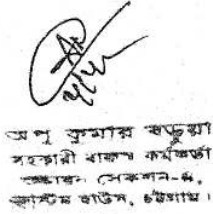 অপু কুমার বড়ুয়া
সহকারী রাজস্ব কর্মকর্তা
সেকশন-৮,
কাস্টম হাউস, চট্টগ্রাম।